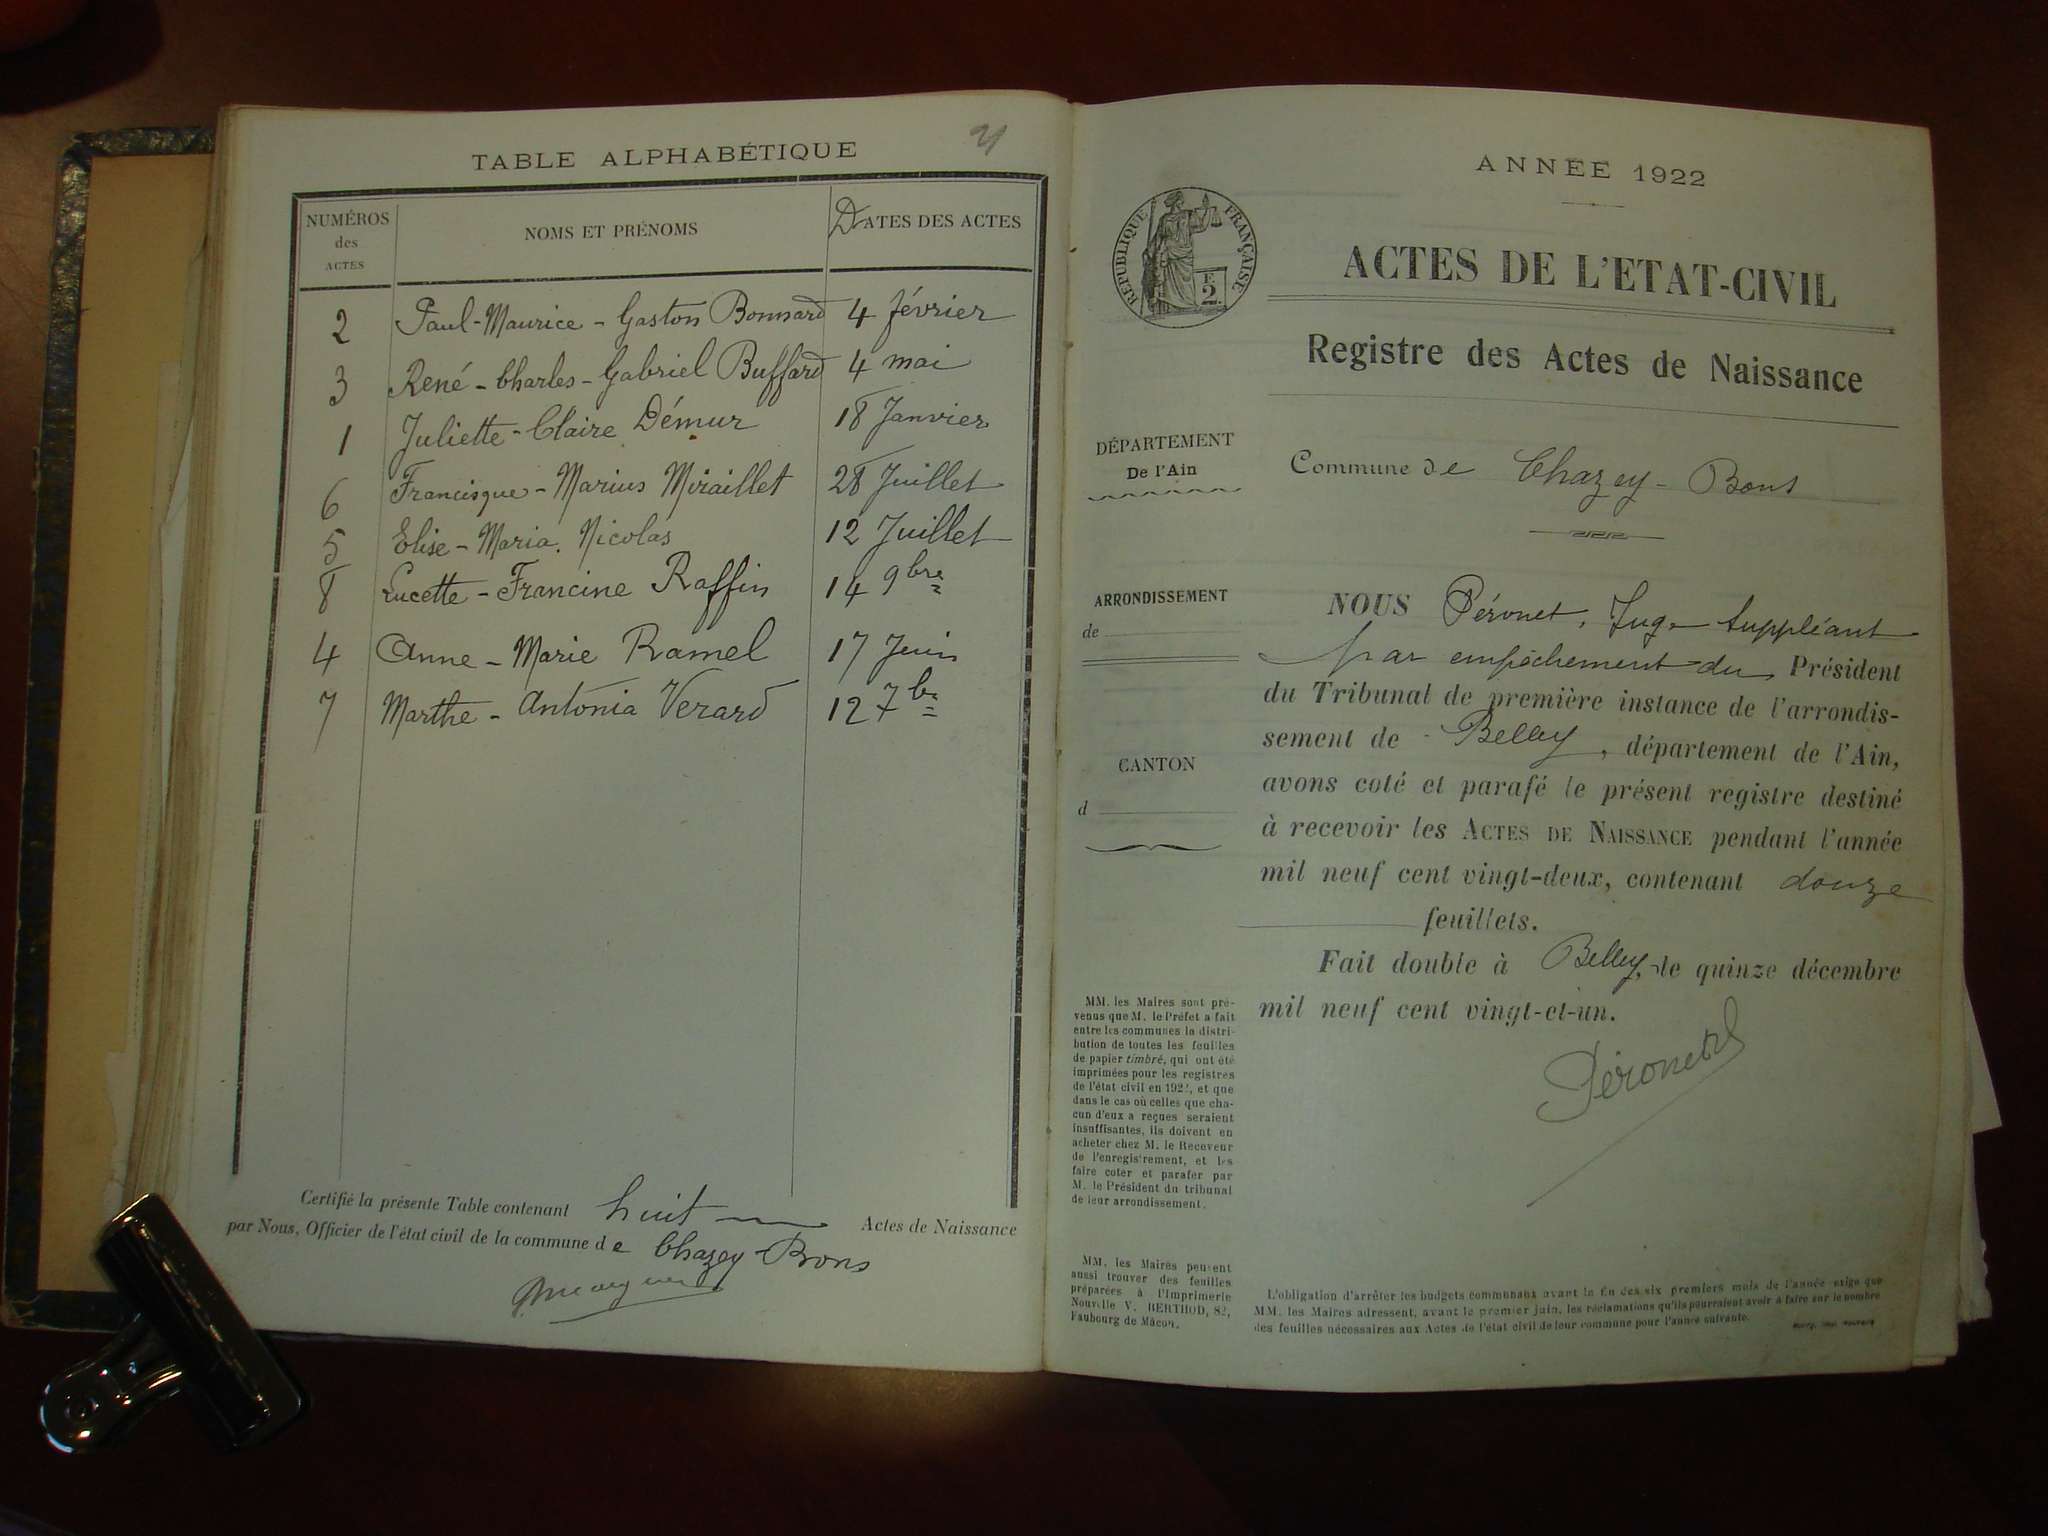 TABLE ALPHABÉTIQUE
21
NUMÉROS
des
ACTES
NOMS ET PRÉNOMS
DATES DES ACTES
2 Paul-Maurice-Gaston Bonnard 4 février
3 René-Charles-Gabriel Buffard 4 mai
1 Juliette-Claire Démur 18 Janvier
6 Francisque-Marius Miraillet 28 Juillet
5 Elise-Maria Nicolas 12 Juillet
8 Lucette-Francine Raffin 14 9bre
4 Anne-Marie Ramel 17 Juin
7 Marthe-Antonia Verard 12 7bre
Certifié la présente Table contenant huit Actes de Naissance
par Nous, Officier de l'état civil de la commune de Chazey-Bons
ANNÉE 1922
RÉPUBLIQUE FRANÇAISE
F.
2.
ACTES DE L'ETAT-CIVIL
Registre des Actes de Naissance
DÉPARTEMENT
De l'Ain
Commune de Chazey-Bons
ARRONDISSEMENT
de
CANTON
d
NOUS Péronet, Juge Suppléant
par empêchement du Président
du Tribunal de première instance de l'arrondis-
sement de Belley, département de l'Ain,
avons coté et parafé le présent registre destiné
à recevoir les ACTES DE NAISSANCE pendant l'année
mil neuf cent vingt-deux, contenant douze
feuillets.
Fait double à Belley, le quinze décembre
mil neuf cent vingt-et-un.
Péronet
MM. les Maires sont pré-
venus que M. le Préfet a fait
entre les communes la distri-
bution de toutes les feuilles
de papier timbré, qui ont été
imprimées pour les registres
de l'état civil en 1922, et que
dans le cas où celles que cha-
cun d'eux a reçues seraient
insuffisantes, ils doivent en
acheter chez M. le Receveur
de l'enregistrement, et les
faire coter et parafer par
M. le Président du tribunal
de leur arrondissement.
MM. les Maires peuvent
aussi trouver des feuilles
préparées à l'Imprimerie
Nouvelle V. BERTHOD, 82,
Faubourg de Mâcon.
L'obligation d'arrêter les budgets communaux avant la fin des six premiers mois de l'année exige que
MM. les Maires adressent, avant le premier juin, les réclamations qu'ils pourraient avoir à faire sur le nombre
des feuilles nécessaires aux Actes de l'état civil de leur commune pour l'année suivante.